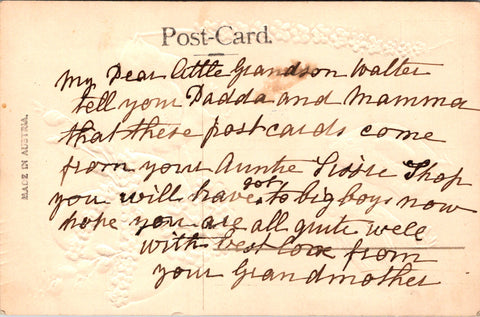 Post-Card.
My Dear little Grandson Walter
tell your Dadda and Mamma
that these post cards come
from your Auntie Sissie Shop
you will have got to big boys now
hope you are all quite well
with best love from
your Grandmother
MADE IN AUSTRIA.